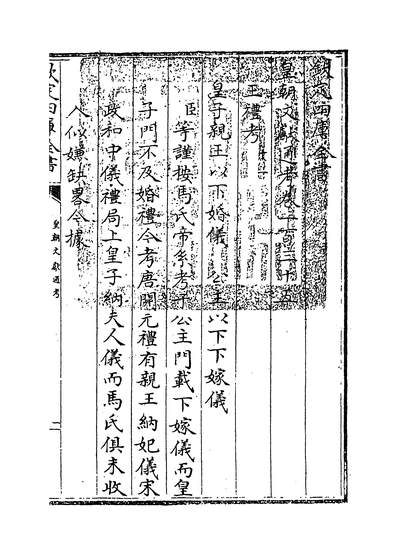 欽定四庫全書
皇朝文獻通考卷一百五十五
王禮考
皇子親王以下婚儀 公主以下下嫁儀
臣等謹按馬氏帝系考于公主門載下嫁儀而皇
子門不及婚禮今考唐開元禮有親王納妃儀宋
政和中儀禮局上皇子納夫人儀而馬氏俱未收
入似嫌缺畧今據
欽定四庫全書
皇朝文獻通考